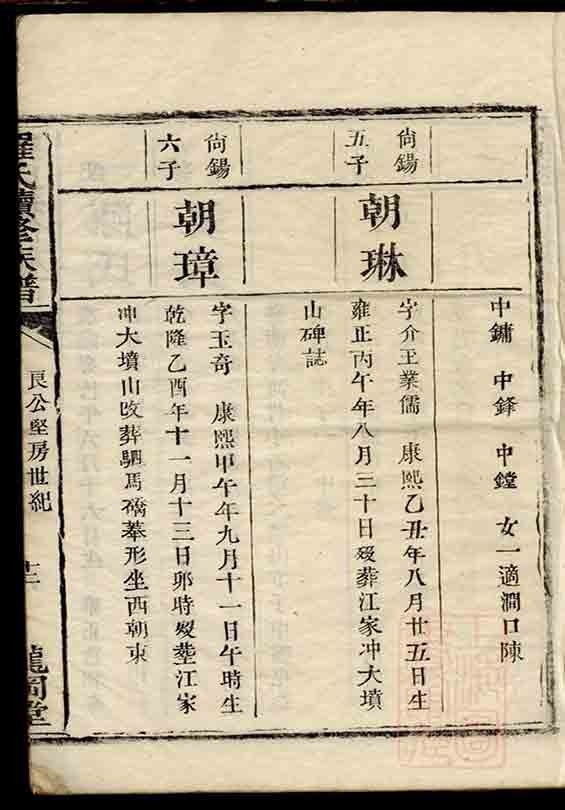 中鏞　中鋒　中鏜　女一適澗口陳
尙錫
五子
朝琳
字介玉業儒　康熙乙丑年八月廿五日生
雍正丙午年八月二十日歿葬江家冲大墳
山碑誌
尙錫
六子
朝璋
字玉奇　康熙甲午年九月十一日午時生
乾隆乙酉年十一月十三日卯時歿塟江家
冲大墳山改葬駟馬礄墓形坐西朝東
羅氏續修族譜
良公堅房世紀